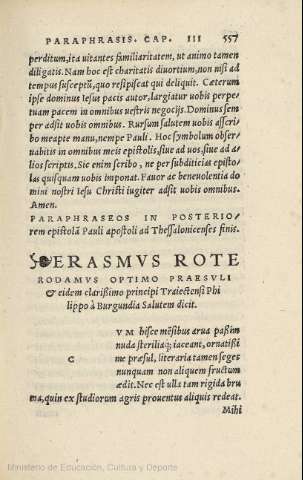 PARAPHRASIS. CAP. III 557
perditum, ita uitantes familiaritatem, ut animo tamen
diligatis. Nam hoc est charitatis diuortium, non nisi ad
tempus susceptũ, quo resipiscat qui deliquit. Cæterum
ipse dominus Iesus pacis autor, largiatur uobis perpe-
tuam pacem in omnibus uestris negocijs. Dominus sem
per adsit uobis omnibus. Rursum salutem uobis asscri-
bo meapte manu, nempe Pauli. Hoc symbolum obser-
uabitis in omnibus meis epistolis, siue ad uos, siue ad a-
lios scriptis. Sic enim scribo, ne per subditicias episto-
las quisquam uobis imponat. Fauor ac beneuolentia do
mini nostri Iesu Christi iugiter adsit uobis omnibus.
Amen.
PARAPHRASEOS IN POSTERIO-
rem epistolã Pauli apostoli ad Thessalonicenses finis.
DERASMVS ROTE
RODAMVS OPTIMO PRAESVLI
& eidem clarißimo principi Traiectensi Phi
lippo à Burgundia Salutem dicit.
C VM hisce mẽsibus arua paßim
nuda sterilia'q; iaceant, ornatißi
me præsul, literaria tamen seges
nunquam non aliquem fructum
ædit. Nec est ulla tam rigida bru
ma, quin ex studiorum agris prouentus aliquis redeat.
Mihi
Ministerio de Educación, Cultura y Deporte